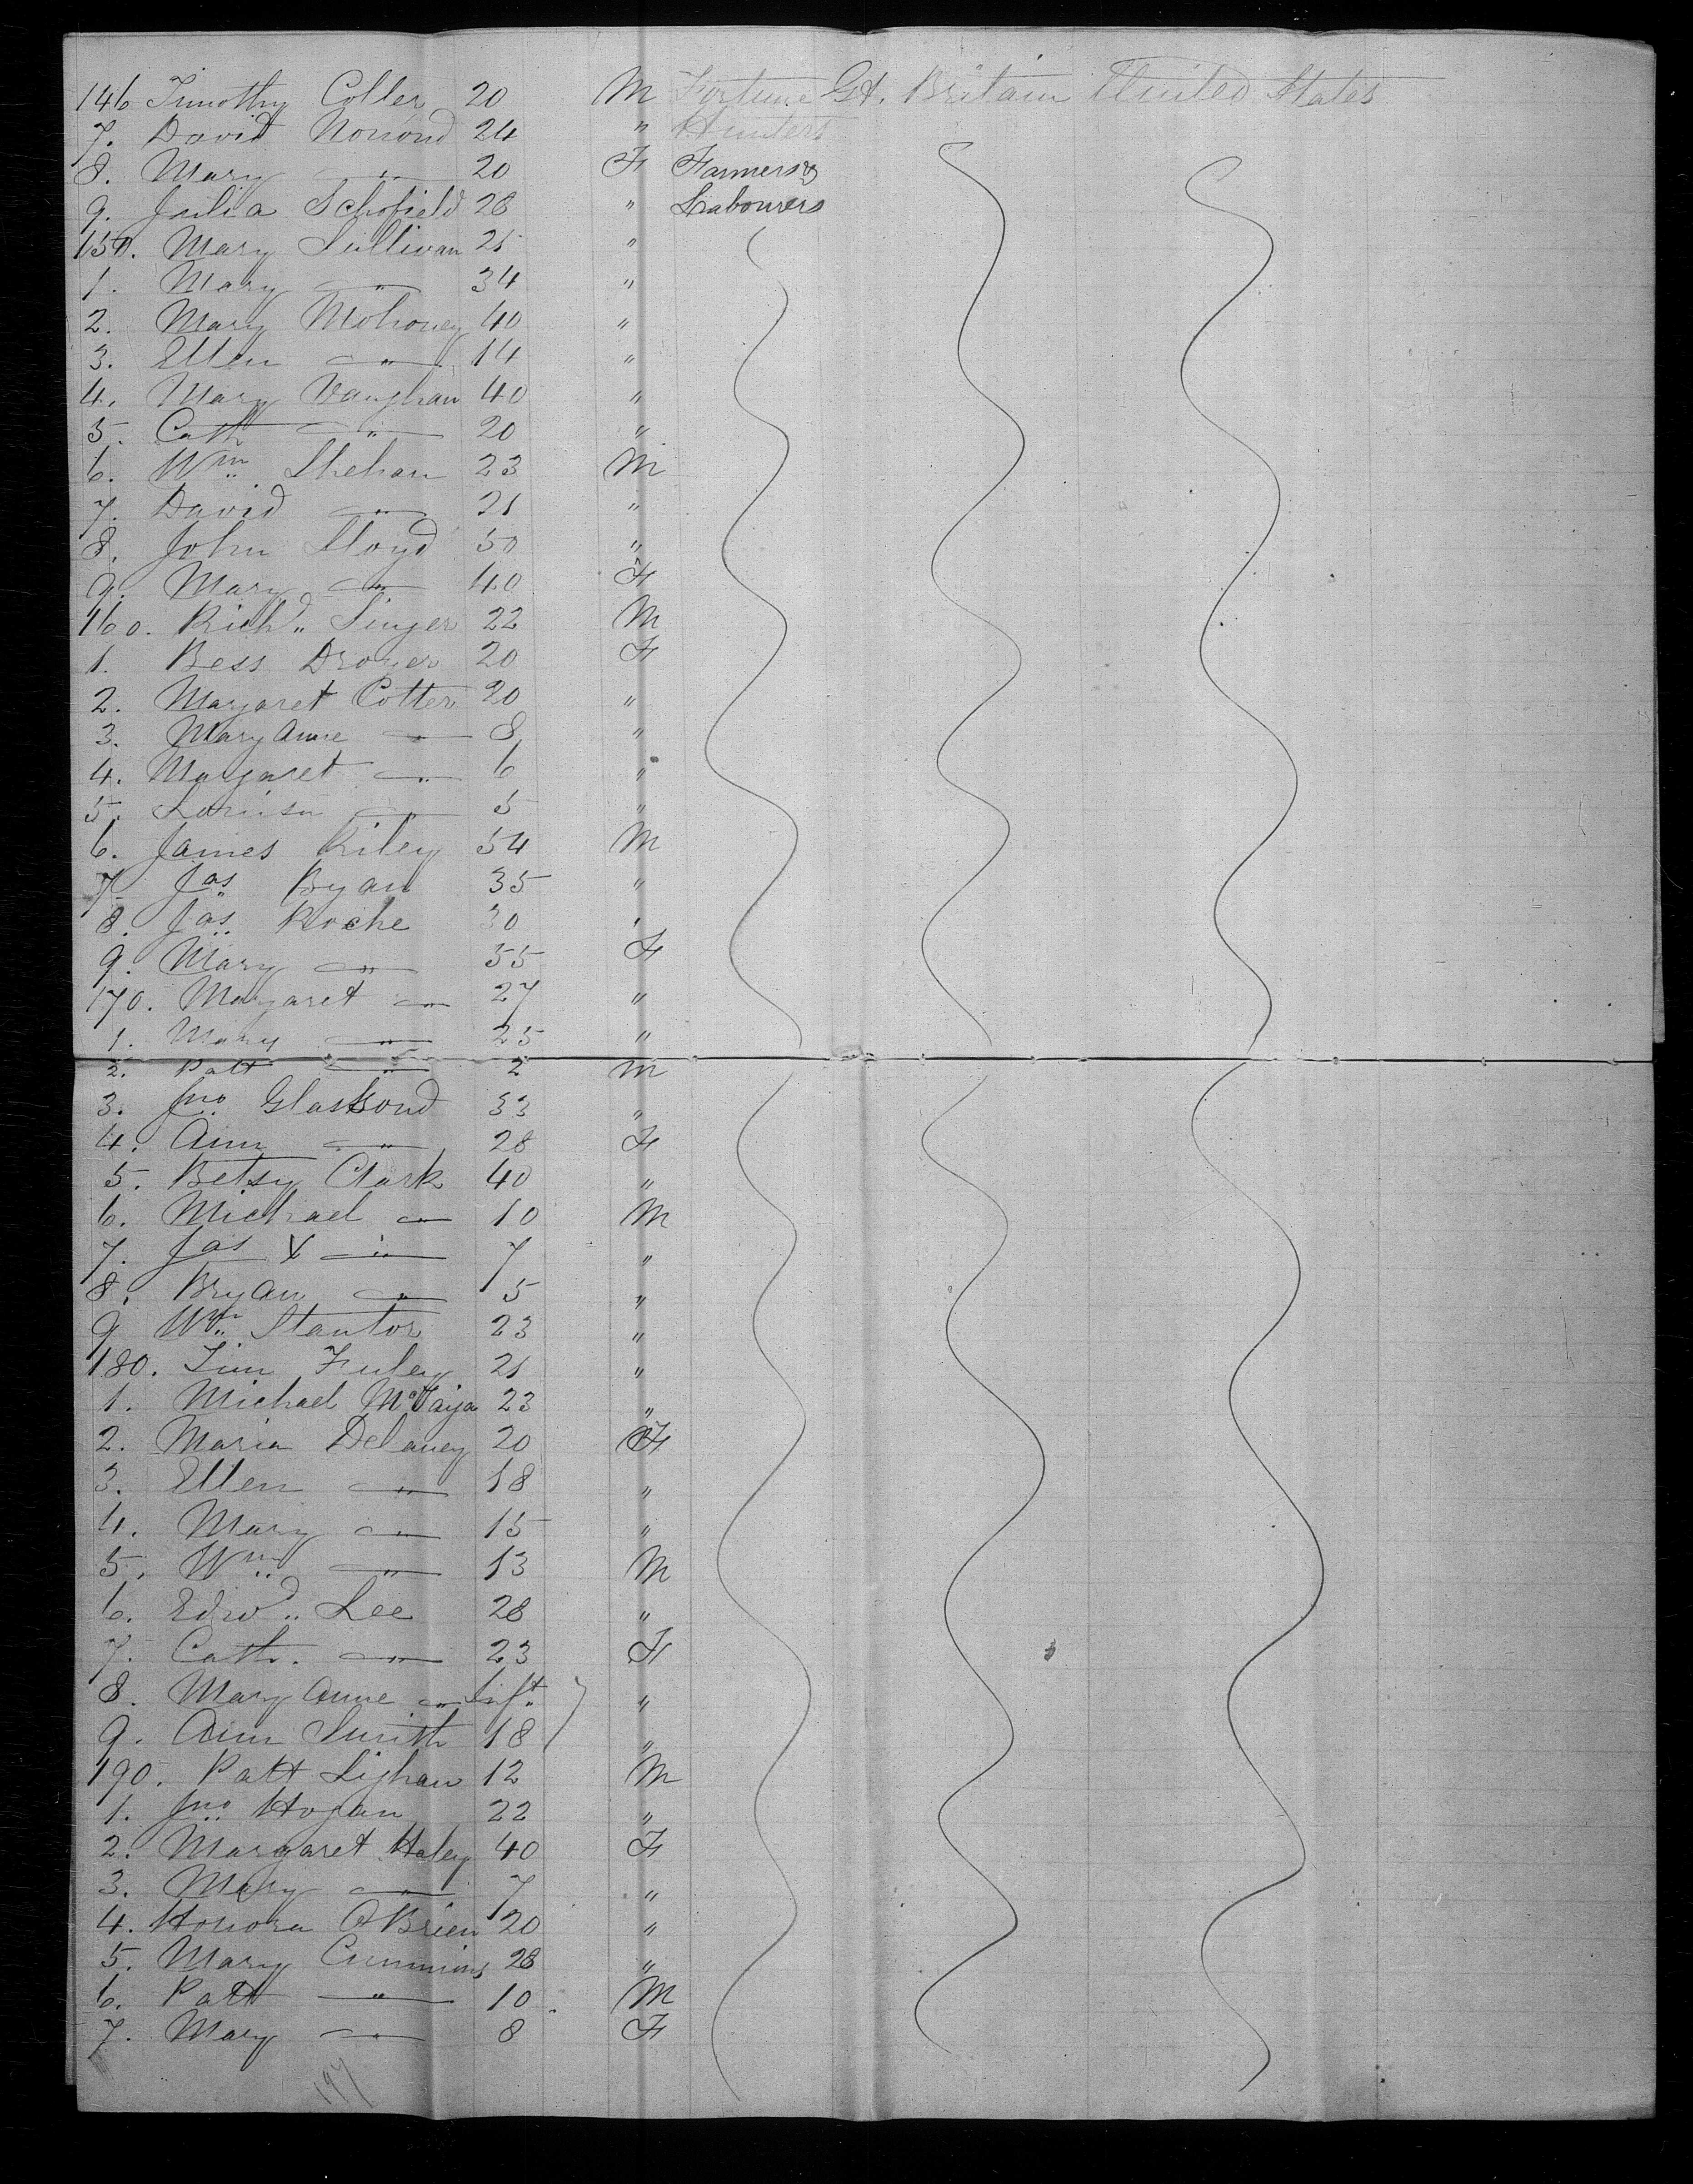 146 Timothy Coller 20 M Fortune Gt. Britain United States
7. David Nonond 24 " Hunters
8. Mary —"— 20 F Farmers &
9. Julia Schofield 28 " Labourers
150. Mary Sullivan 25 "
1. Mary —"— 34 "
2. Mary Mohoney 40 "
3. Ellen —"— 14 "
4. Mary Vaughan 40 "
5. Cath —"— 20 "
6. Wm. Shehan 23 M
7. David —"— 21 "
8. John Lloyd 50 "
9. Mary —"— 40 F
160. Richd. Singer 22 M
1. Bess Droyer 20 F
2. Margaret Cotter 20 "
3. Mary Anne —"— 8 "
4. Margaret —"— 6 "
5. —"— 5 "
6. James Riley 54 M
7. Jas Ryan 35 "
8. Jas. Roche 30 "
9. Mary —"— 55 F
170. Margaret —"— 27 "
1. Mary —"— 25 "
2. Patt —"— 2 M
3. Jno. Glassond 33 "
4. Ann —"— 28 F
5. Betsy Clark 40 "
6. Michael —"— 10 M
7. Jas X —"— 7 "
8. Bryan —"— 5 "
9 Wm. Stantor 23 "
180. Tim Fuley 21 "
1. Michael 23 "
2. Maria Delaney 20 F
3. Ellen —"— 18 "
4. Mary —"— 15 "
5. Wm. —"— 13 M
6. Edwd. Lee 28 "
7. Cath. —"— 23 F
8. Mary Anne —"— Inft. "
9. Ann Smith 18 "
190. Patt Lighan 12 M
1. Jno. Hogan 22 "
2. Margaret Haley 40 F
3. Mary —"— 7 "
4. Honora OBrien 20 "
5. Mary Cummins 28 "
6. Patt —"— 10. M
7. Mary —"— 8 F
197